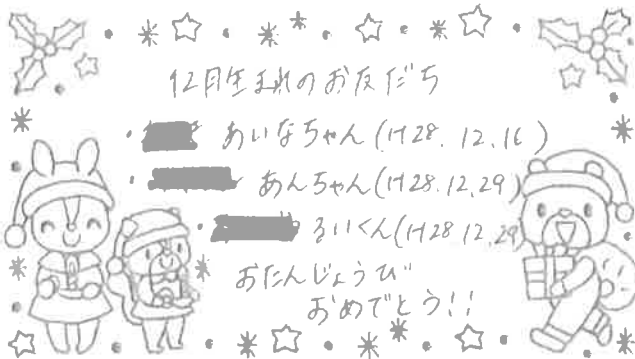 12月生まれのお友だち
・ あいなちゃん(H28.12.16)
・ あんちゃん(H28.12.29)
・ るいくん(H28.12.29)
おたんじょうび
おめでとう!!